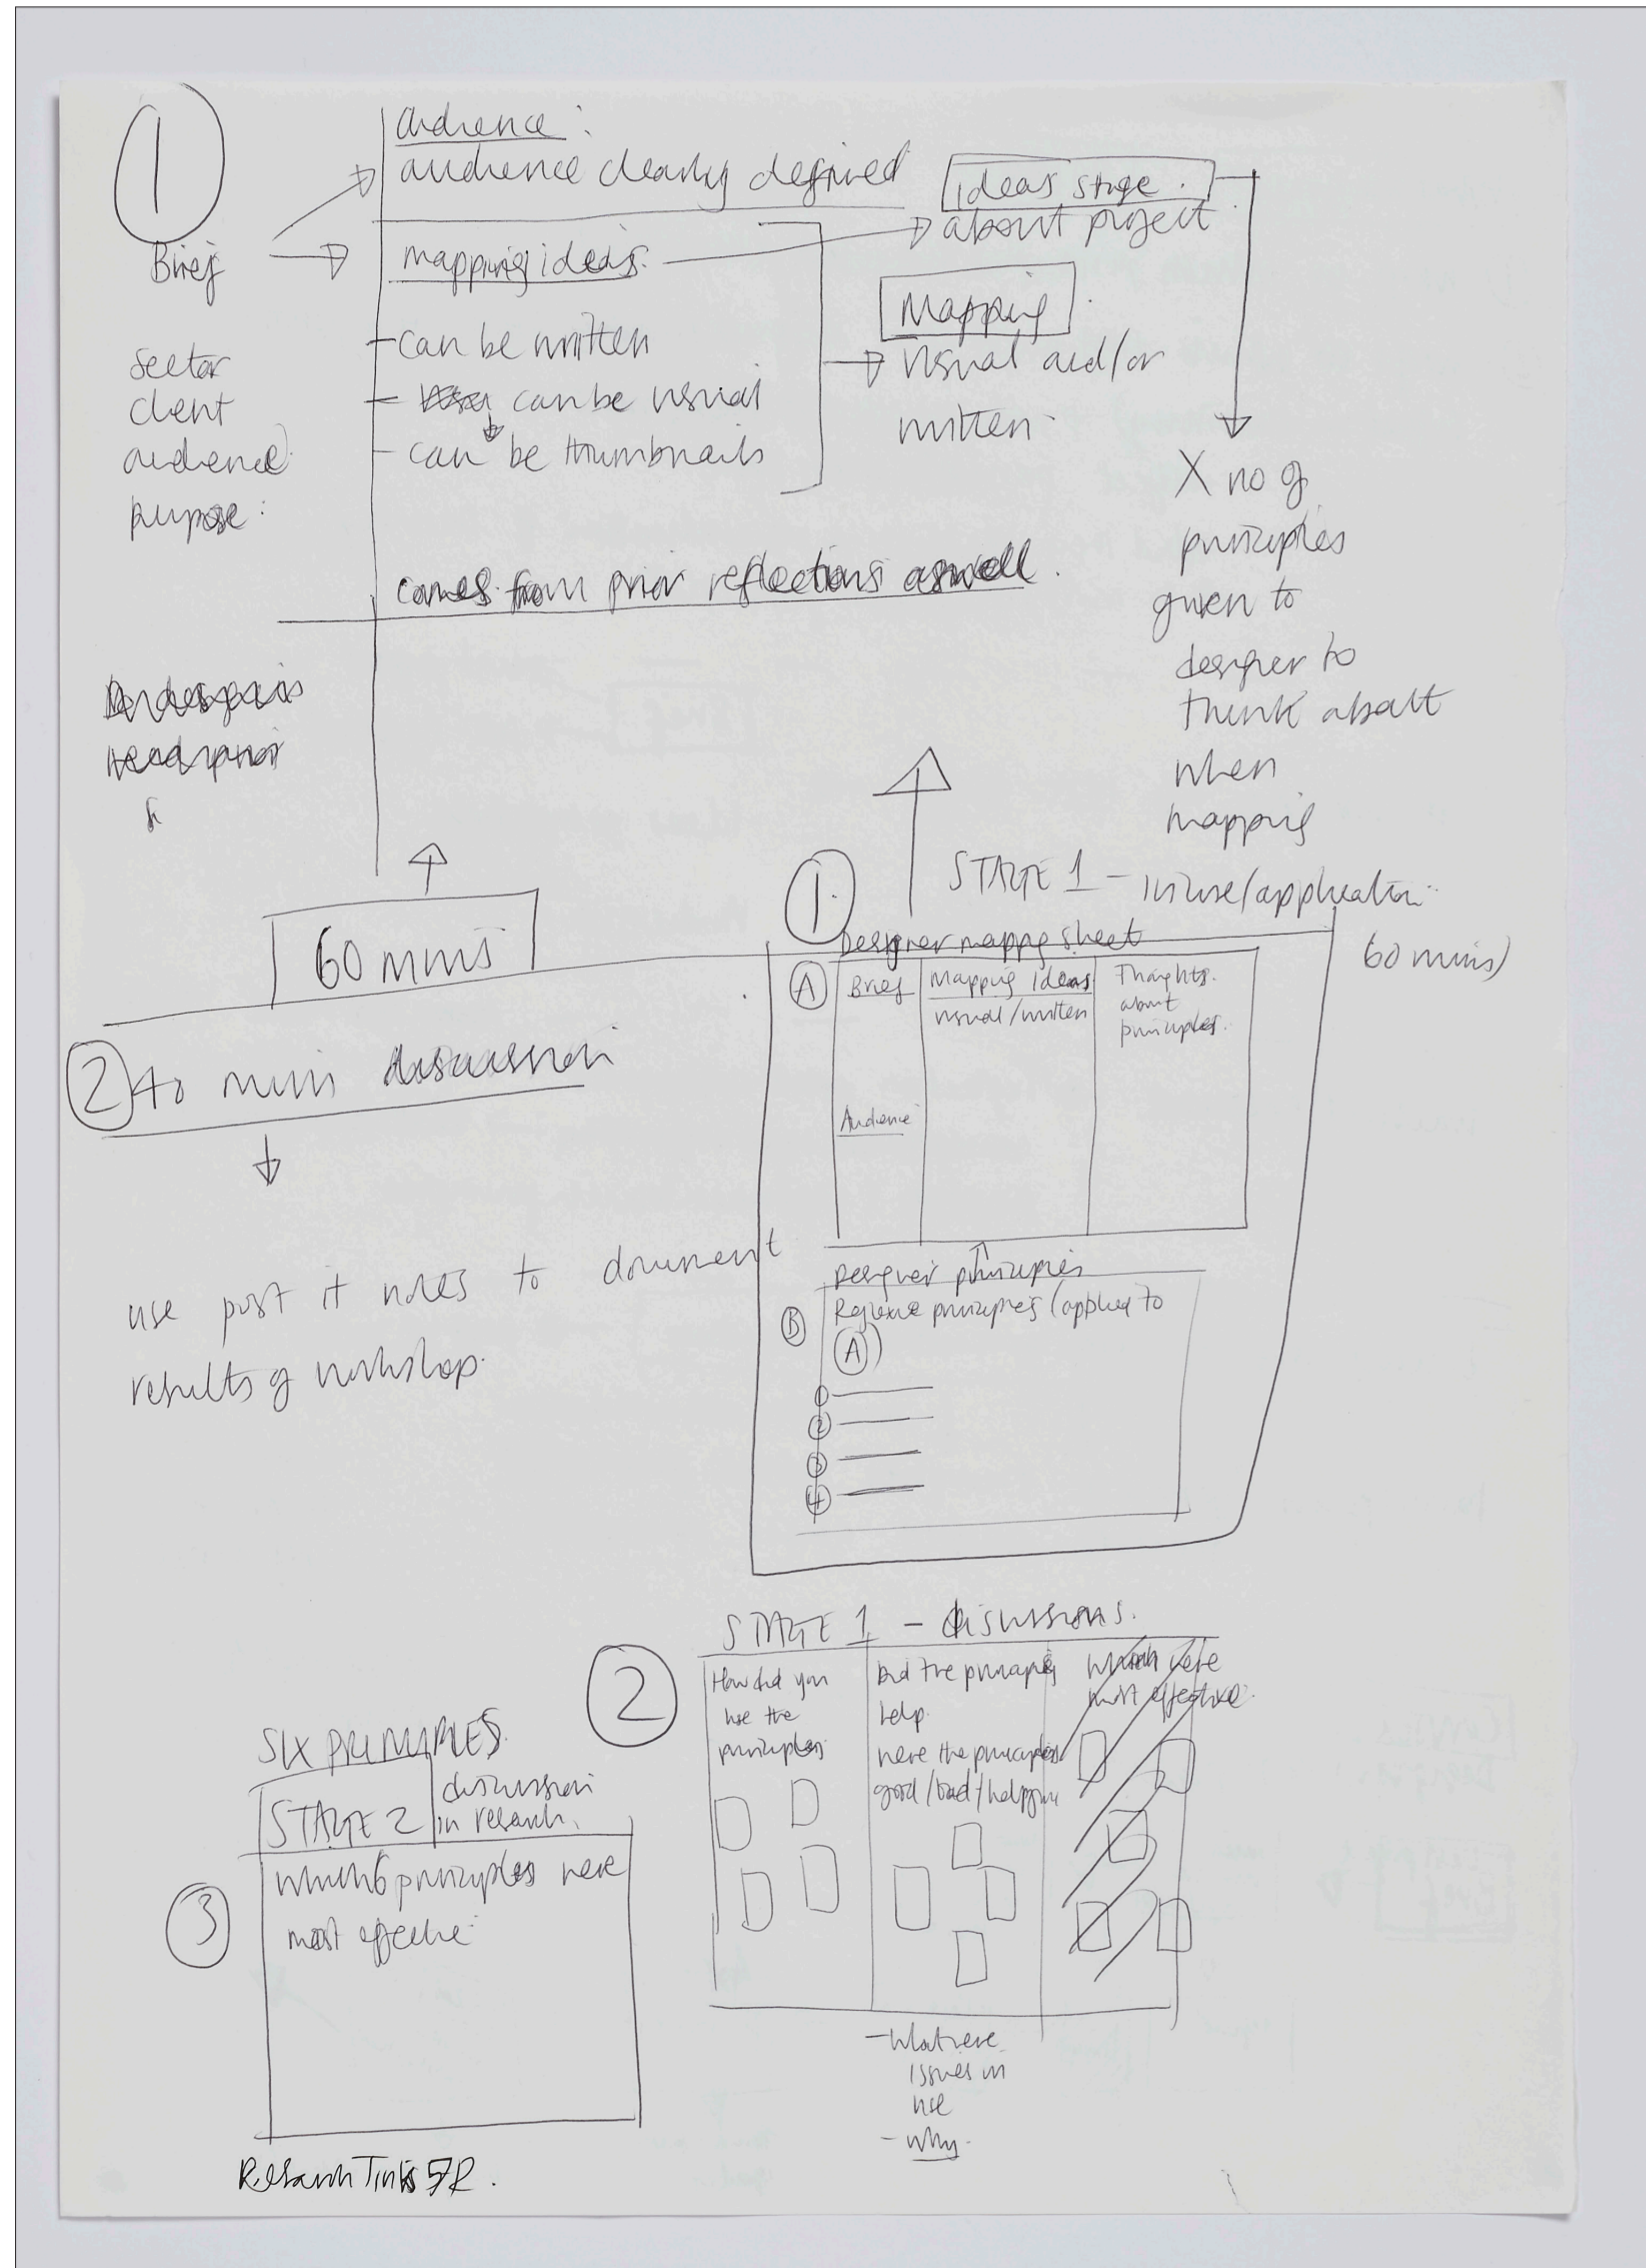 1
Brief
sector
client
audience
purpose:
audience:
audience clearly defined
mapping ideas.
- can be written
- can be visual
- can be thumbnails
comes from prior reflections aswell.
ideas stage.
about project
Mapping
visual and/or
written
X no of
principles
given to
designer to
think about
when
mapping
60 mins
2 40 mins discussion
use post it notes to document
results of workshop.
1. STAGE 1 - in use/application
60 mins)
Designer mapping sheet
A Brief
Audience
Mapping Ideas
visual/written
Thoughts.
about
principles.
Designer principles
B
principles (applied to
A)
1
2
3
4
2 STAGE 1 - discussions.
How did you
use the
principles
Did the principles
help.
were the principles
good/bad/
which were
most effective.
- What were
issues in
use
- why.
SIX PRINCIPLES.
3 STAGE 2
discussion
in research.
which 6 principles were
most effective